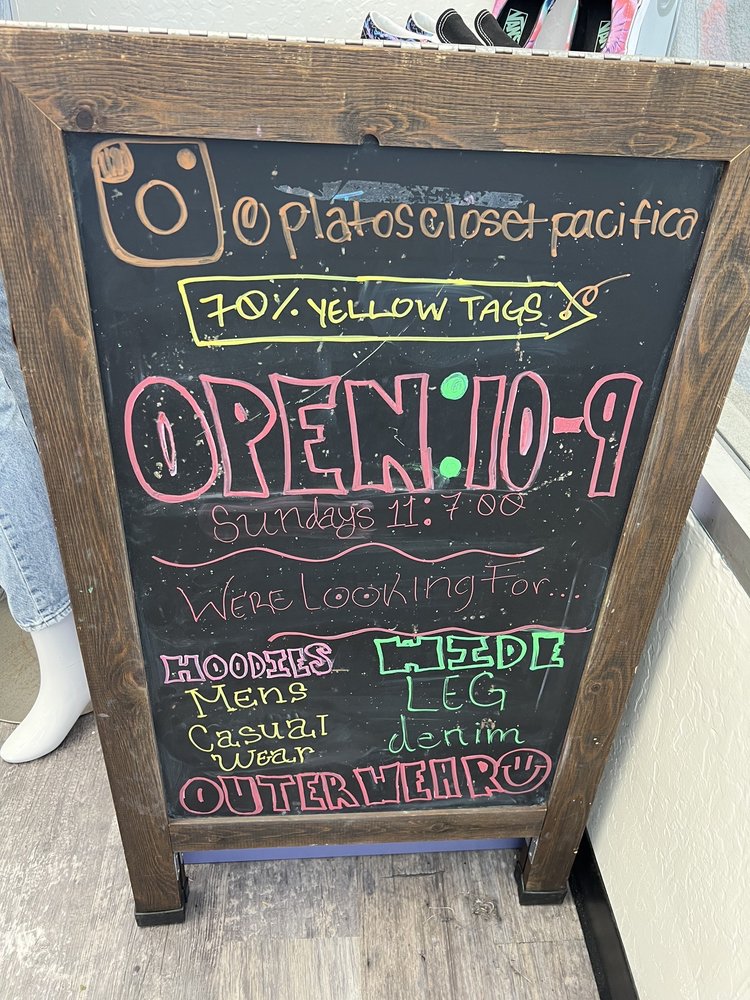 VANS
@platosclosetpacifica
70% YELLOW TAGS
OPEN:10-9
Sundays 11:7:00
WERE LOOKING FOR...
HOODIES
Mens
Casual
Wear
WIDE
LEG
denim
OUTERWEAR